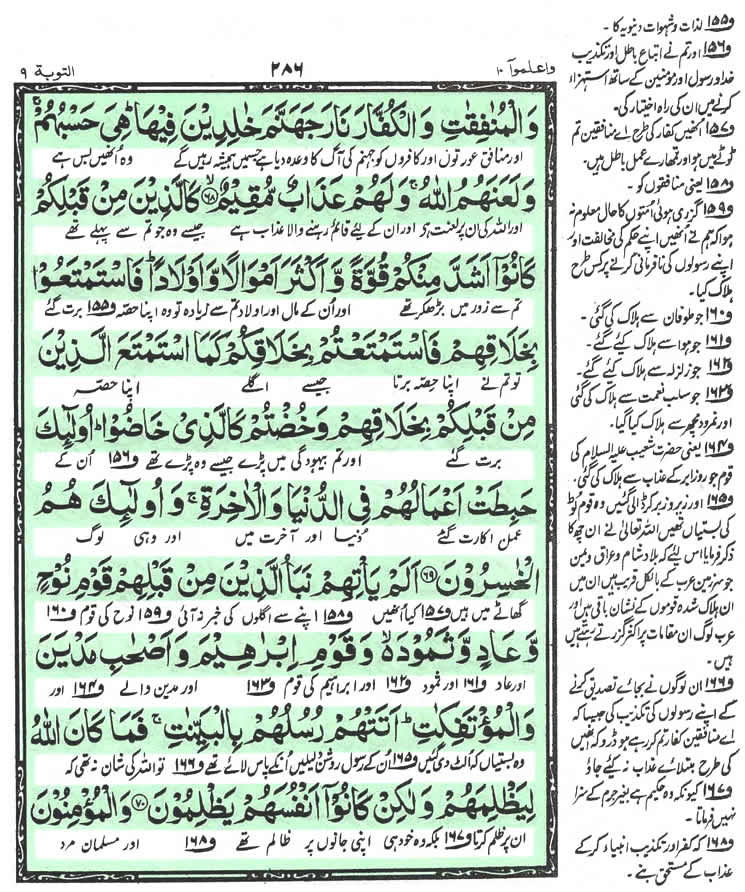 التوبة ٩
٢٨٦
واعلموا ١٠
وَالْمُنٰفِقٰتِ وَالْكُفَّارَ نَارَ جَهَنَّمَ خٰلِدِيْنَ فِيْهَا ؕ هِيَ حَسْبُهُمْ ۚ
اور منافق عورتوں اور کافروں کو جہنم کی آگ کا وعدہ دیا ہے جسمیں ہمیشہ رہیں گے وہ انھیں بس ہے
وَلَعَنَهُمُ اللّٰهُ ۚ وَلَهُمْ عَذَابٌ مُّقِيْمٌ ۙ﴿۶۸﴾ كَالَّذِيْنَ مِنْ قَبْلِكُمْ
اور اللہ کی ان پر لعنت ہے اور ان کے لیے قائم رہنے والا عذاب ہے جیسے وہ جو تم سے پہلے تھے
كَانُوْۤا اَشَدَّ مِنْكُمْ قُوَّةً وَّاَكْثَرَ اَمْوَالًا وَّاَوْلَادًا ؕ فَاسْتَمْتَعُوْا
تم سے زور میں بڑھکر تھے اور ان کے مال اور اولاد تم سے زیادہ تو وہ اپنا حصہ و۱۵۵ برت گئے
بِخَلَاقِهِمْ فَاسْتَمْتَعْتُمْ بِخَلَاقِكُمْ كَمَا اسْتَمْتَعَ الَّذِيْنَ
تو تم نے اپنا حصہ برتا جیسے اگلے اپنا حصہ
مِنْ قَبْلِكُمْ بِخَلَاقِهِمْ وَخُضْتُمْ كَالَّذِيْ خَاضُوْا ؕ اُولٰٓئِكَ
برت گئے اور تم بیہودگی میں پڑے جیسے وہ پڑے تھے و۱۵۶ ان کے
حَبِطَتْ اَعْمَالُهُمْ فِي الدُّنْيَا وَالْاٰخِرَةِ ۚ وَاُولٰٓئِكَ هُمُ
عمل اکارت گئے دنیا اور آخرت میں اور وہی لوگ
الْخٰسِرُوْنَ ﴿۶۹﴾ اَلَمْ يَاْتِهِمْ نَبَاُ الَّذِيْنَ مِنْ قَبْلِهِمْ قَوْمِ نُوْحٍ
گھاٹے میں ہیں و۱۵۷ کیا انھیں و۱۵۸ اپنے سے اگلوں کی خبر نہ آئی و۱۵۹ نوح کی قوم و۱۶۰
وَّعَادٍ وَّثَمُوْدَ ۙ وَقَوْمِ اِبْرٰهِيْمَ وَاَصْحٰبِ مَدْيَنَ
اور عاد و۱۶۱ اور ثمود و۱۶۲ اور ابراہیم کی قوم و۱۶۳ اور مدین والے و۱۶۴ اور
وَالْمُؤْتَفِكٰتِ ؕ اَتَتْهُمْ رُسُلُهُمْ بِالْبَيِّنٰتِ ۚ فَمَا كَانَ اللّٰهُ
وہ بستیاں کہ الٹ دی گئیں و۱۶۵ ان کے رسول روشن دلیلیں انکے پاس لائے تھے و۱۶۶ تو اللہ کی شان نہ تھی کہ
لِيَظْلِمَهُمْ وَلٰكِنْ كَانُوْۤا اَنْفُسَهُمْ يَظْلِمُوْنَ ﴿۷۰﴾ وَالْمُؤْمِنُوْنَ
ان پر ظلم کرتا و۱۶۷ بلکہ وہ خود ہی اپنی جانوں پر ظالم تھے و۱۶۸ اور مسلمان مرد
و۱۵۵ لذات و شہوات دنیویہ کا۔
و۱۵۶ اور تم نے اتباع باطل اور تکذیب
خدا و رسول اور مؤمنین کے ساتھ استہزاء
کرنے میں ان کی راہ اختیار کی۔
و۱۵۷ انھیں کفار کی طرح اے منافقین تم
ٹوٹے میں ہو اور تمھارے عمل باطل ہیں۔
و۱۵۸ یعنی منافقوں کو۔
و۱۵۹ گزری ہوئی امتوں کا حال معلوم نہ
ہوا کہ ہم نے انھیں اپنے حکم کی مخالفت اور
اپنے رسولوں کی نافرمانی کرنے پر کس طرح
ہلاک کیا۔
و۱۶۰ جو طوفان سے ہلاک کی گئی۔
و۱۶۱ جو ہوا سے ہلاک کیے گئے۔
و۱۶۲ جو زلزلہ سے ہلاک کیے گئے۔
و۱۶۳ جو سلب نعمت سے ہلاک کی گئی
اور نمرود مچھر سے ہلاک کیا گیا۔
و۱۶۴ یعنی حضرت شعیب علیہ السلام کی
قوم جو روز ابر کے عذاب سے ہلاک کی گئی۔
و۱۶۵ اور زیر و زبر کر ڈالی گئیں وہ قوم لوط
کی بستیاں تھیں اللہ تعالٰی نے ان چھ کا
ذکر فرمایا اس لیے کہ بلاد شام و عراق و یمن
جو سرزمین عرب کے بالکل قریب ہیں ان میں
ان ہلاک شدہ قوموں کے نشان باقی ہیں اور
عرب لوگ ان مقامات پر اکثر گزرتے رہتے
ہیں۔
و۱۶۶ ان لوگوں نے بجائے تصدیق کرنے
کے اپنے رسولوں کی تکذیب کی جیسا کہ
اے منافقین کفار تم کر رہے ہو ڈرو کہ انھیں
کی طرح مبتلائے عذاب نہ کیے جاؤ
و۱۶۷ کیونکہ وہ حکیم ہے بغیر جرم کے سزا
نہیں فرماتا۔
و۱۶۸ کہ کفر اور تکذیب انبیاء کر کے
عذاب کے مستحق بنے۔